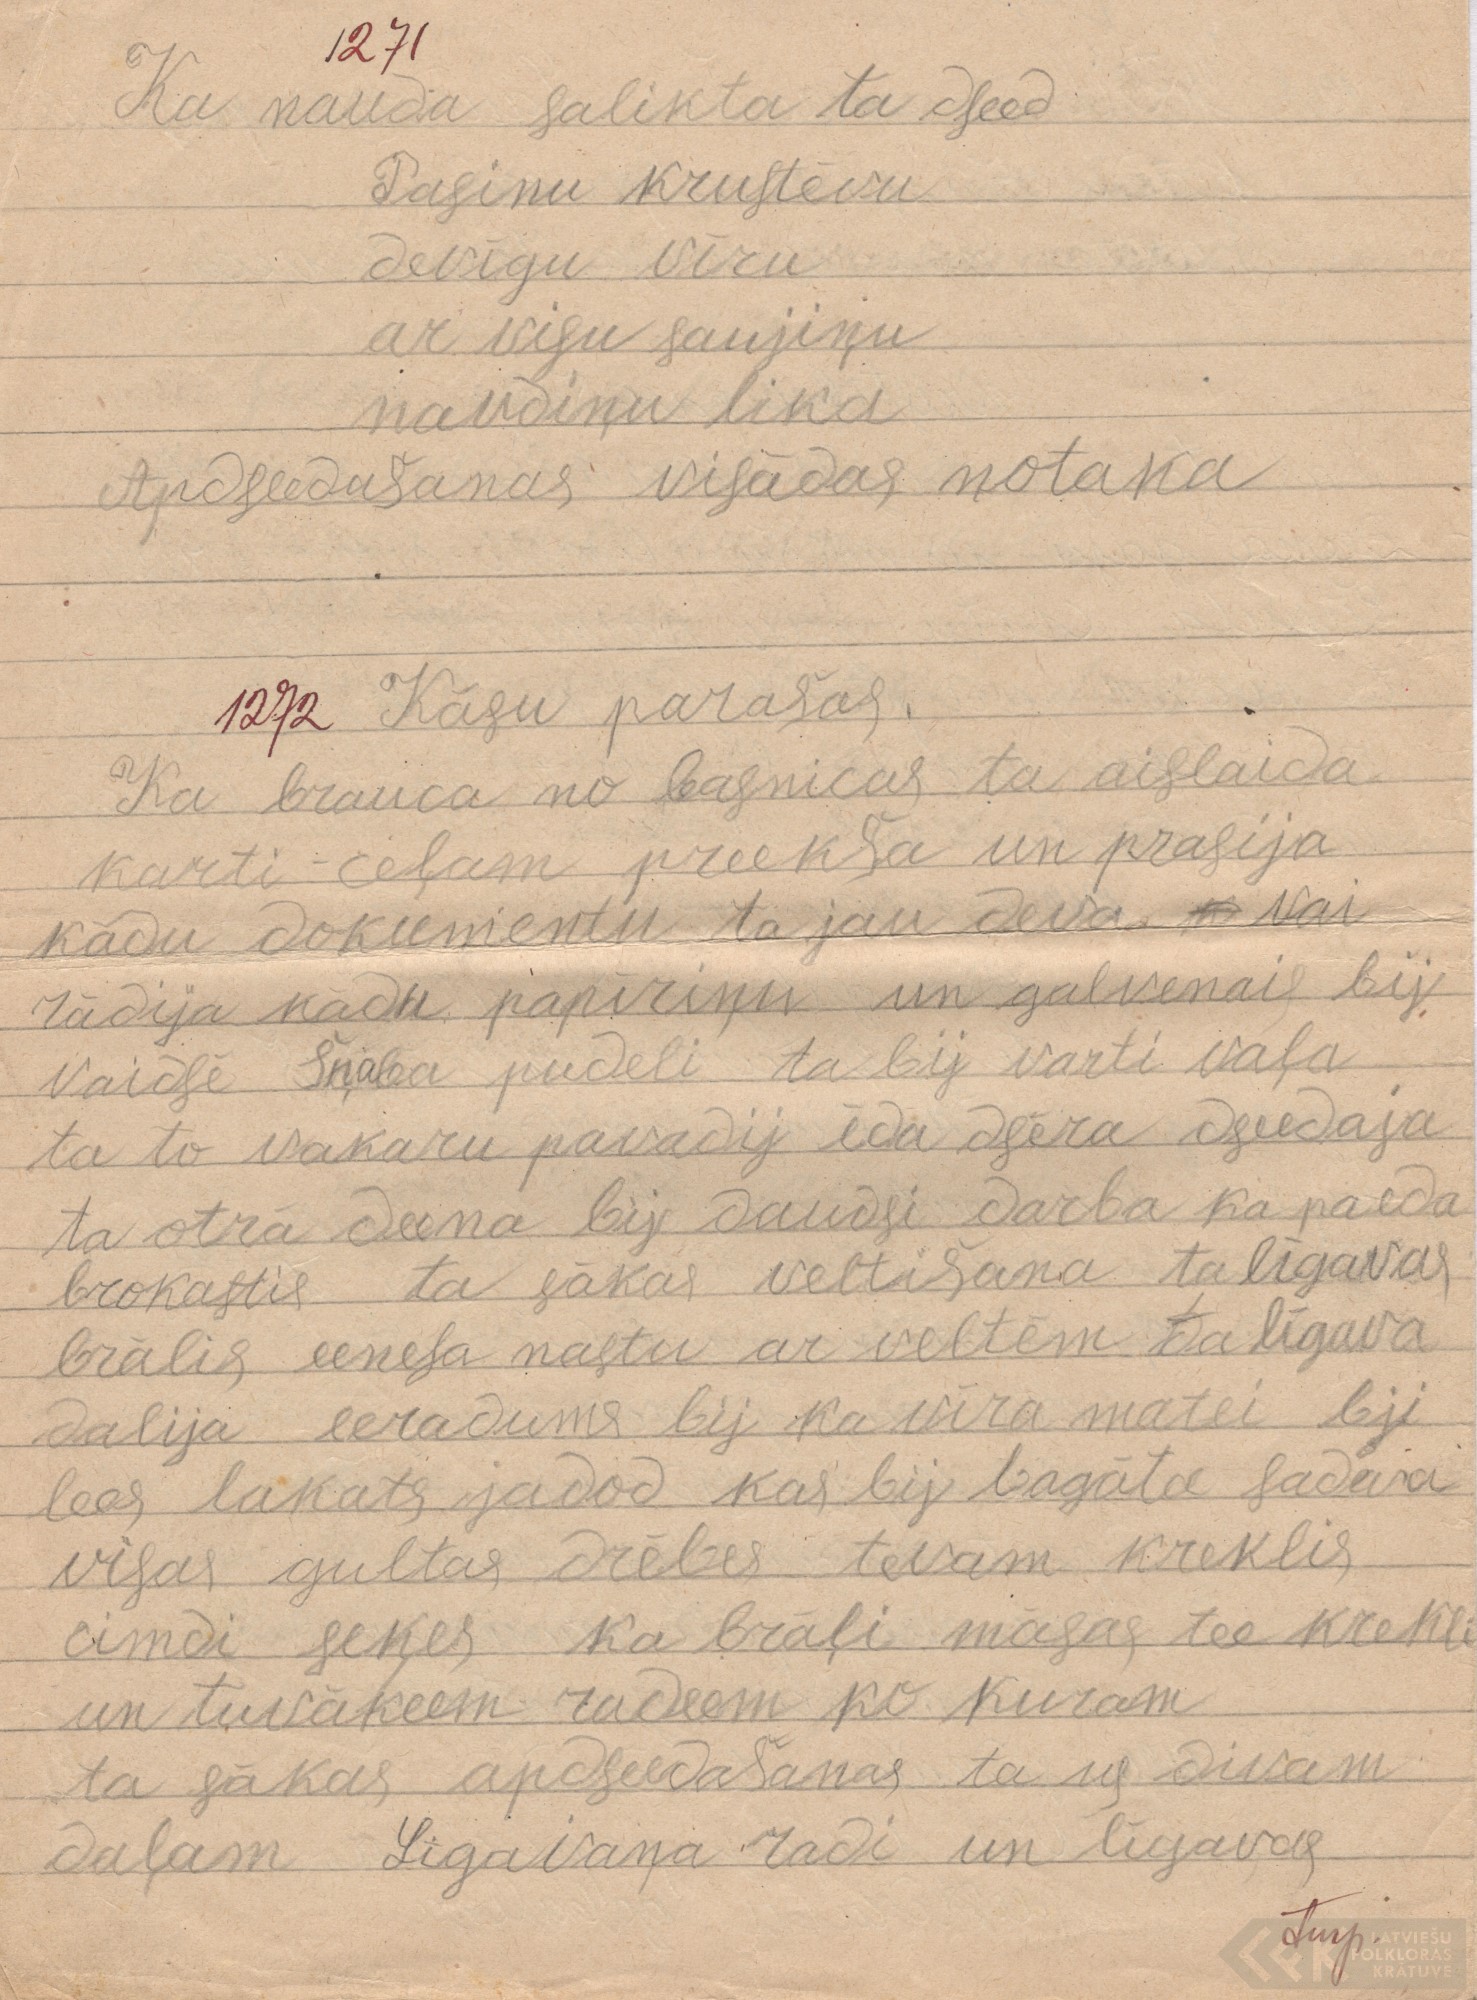 1271
Ka nauda salikta ta dseed
Pasinu krustēvu
devīgu vīru
ar visu saujiņu
naudiņu lika
Apdseedašanas visādas notaka
1272 Kāsu parašas.
Ka brauca no basnicas ta aislaida
karti ceļam preekša un prasija
kādu dokumentu ta jau deva vai
rādija kādu papiriņu un galvenais bij
vaidsē šņaba pudeli ta bij varti vaļa
ta to vakaru pavadij ēda dsēra dseedaja
ta otrā deena bij daudsi darba ka paēda
brokastis ta sākas veltišana ta līgavas
brālis eenesa nastu ar veltēm ta līgava
dalija eeradums bij ka vīra matei bij
lees lakats jadod kas bij bagāta sadeva
visas gultas drēbes tevam kreklis
cimdi seķes ka brāļi māsas tee krekli
un tuvākeem radeem ko kuram
ta sākas apdseedašanas ta us divam
daļam Ligavaņa radi un līgavas
turp.
LATVIEŠU
FOLKLORAS
KRĀTUVE